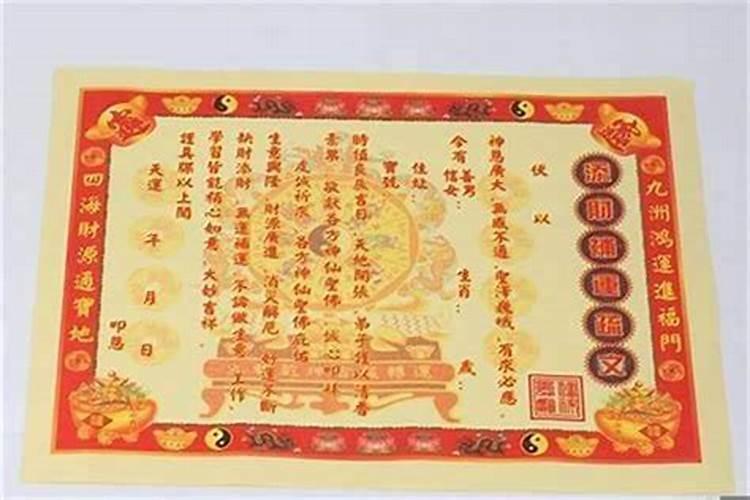 九洲鴻運進福門
添財補運疏文
伏以
神恩廣大 無感不通 聖澤巍峨 有求必應
今有善男
信女: 生肖: 歲:
住址:
寶號
時值良辰吉日 天地開張 弟子獲以清香
素果 敬獻各方神仙聖佛 誠心叩拜
虔誠祈求 各方神仙聖佛庇佑
生意興隆 財源廣進 消災解厄 好運不斷
缺財添財 無運補運 不論做生意 工作、
學習皆能稱心如意 大妙吉祥
謹具疏以上聞
天運 年 月 日
叩恩
四海財源通寶地